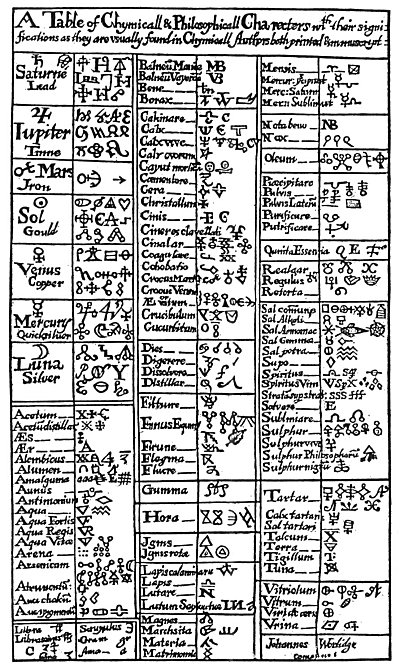 A Table of Chymicall & Philosophicall Charecters wth their signi-
fications as they are usually found in Chymicall Authors both printed & manuscript
Saturne
Lead
Iupiter
Tinne
Mars
Iron
Sol
Gould
Venus
Copper
Mercury
Quicksilver
Luna
Silver
Acetum
Acetu distillat
Æs
Ær
Alembicus
Alumen
Amalgama
Annus
Antimonium
Aqua
Aqua Fortis
Aqua Regis
Aqua Vitae
Arena
Arsenicum
Atramentu
Aurichalcu
Auripigment
Libra
Libra
Scrupulus
Gram
Balneu Mariae MB
Balneu Vaporis VB
Bene
Borax
Calcinare
Calx
Calx vive
Calx ovorum
Caput mortuu
Cementare
Cera
Christallum
Cinis E C
Cineres clavellati
Cinabar
Coagulare
Cohobatio
Crocus Mart
Crocus Veneris
Æs ustum
Crucibulum
Cucurbitum
Dies
Digerere
Dissolvere
Distillar
Filtrare
Fimus Equin
Firune
Flegma
Fluere
Gumma
Hora
Ignis
Ignis rota
Lapis calaminare
Lapis
Lutare
Lutum Sapientiae
Magnes
Marchsita
Materia
Matrimonium
Mensis
Mercur: Saturn
Merc: Sublimat
Notabene NB
Nox
Oleum
Præcipitare
Pulvis
Pulvis Laterum
Purificare
Putrificare
Quinta Essentia Q E
Realgar
Regulus
Retorta
Sal comune
Sal Alkali
Sal Armoniac
Sal Gemma
Sal petra
Sapo
Spiritus
Spiritus Vini
Stratum super strat: SSS
Solvere
Sublimare
Sulphur
Sulphur vive
Sulphur Philosophoru
Sulphur nigru
Tartar
Calx tartari
Sal tartari
Talcum
Terra
Tigillum
Tutia
Vitriolum
Vitrum
Viride æris
Urina
Johannes Worlidge